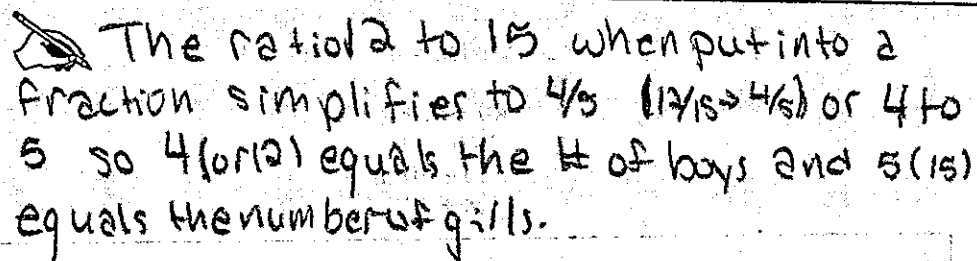 The ratio 12 to 15 when put into a
fraction simplifies to 4/5 (12/15→4/5) or 4 to
5 so 4 (or 12) equals the # of boys and 5 (15)
equals the number of girlls.